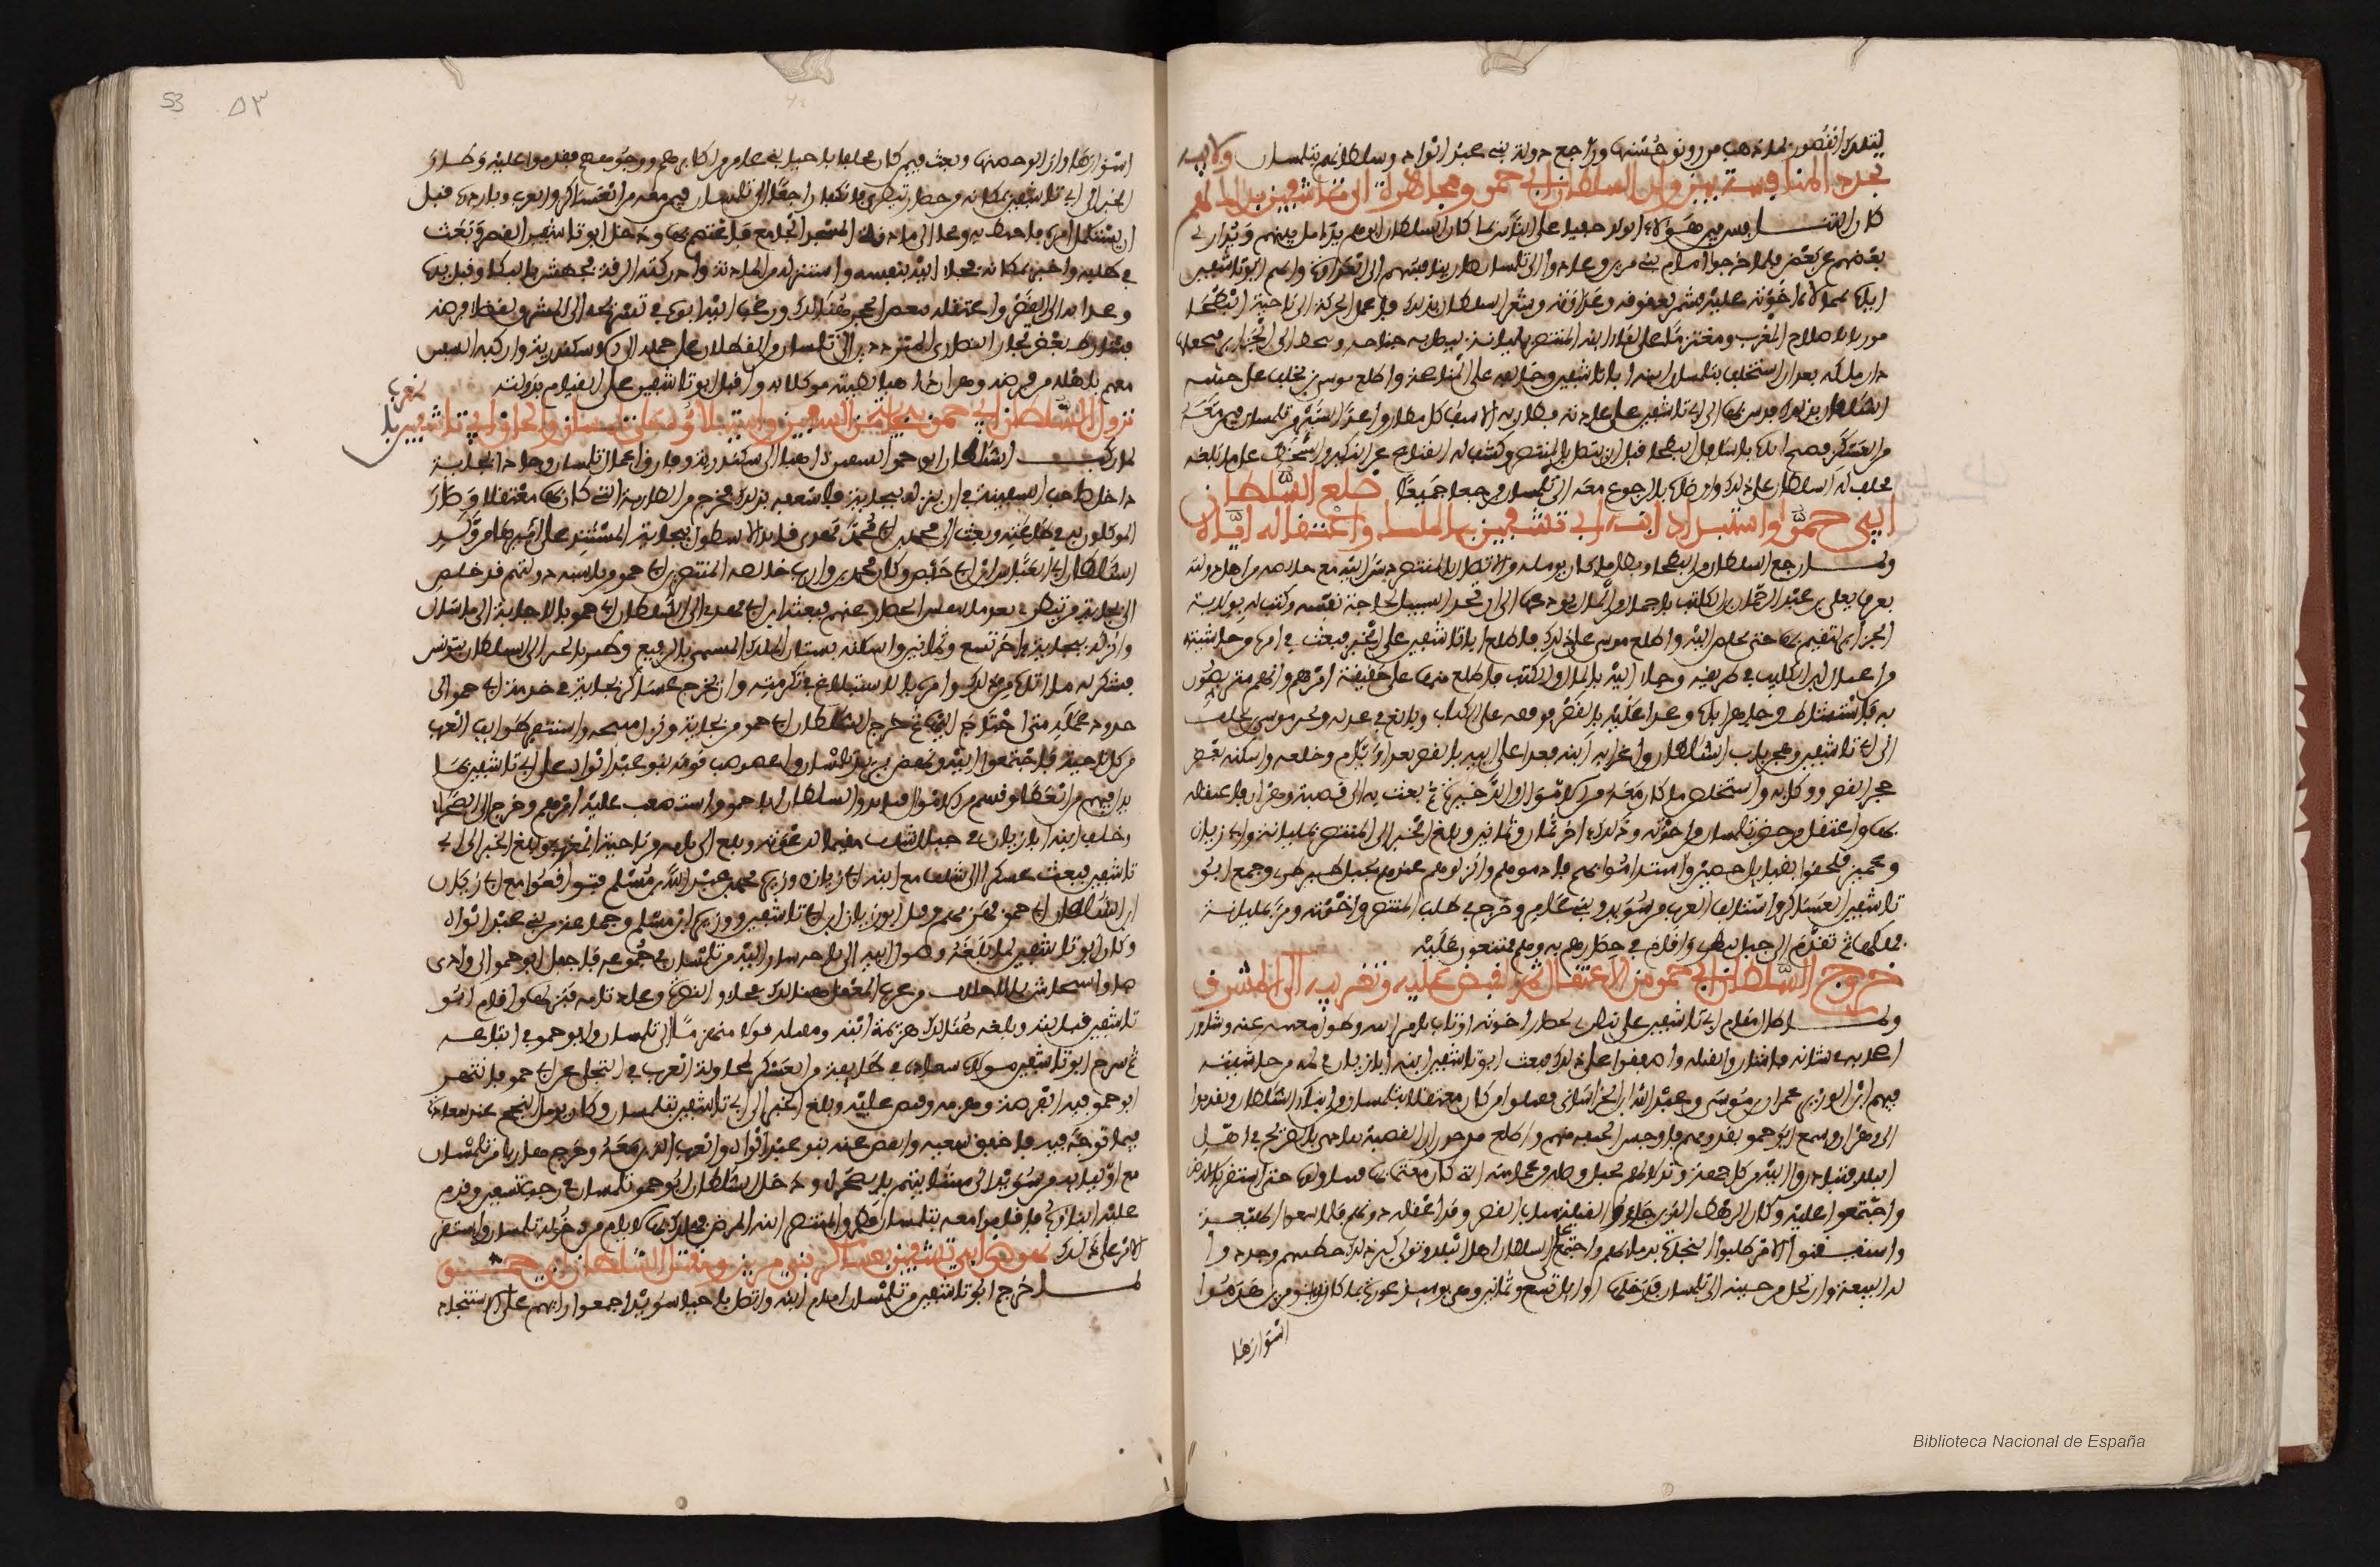 لتلك القصور لما ذهب من رونق حسنها وراجع دولة بني عبد الواد وسلطانهم بتلمسان
تجدد المنافسة بين ولد السلطان ابي حمو ومجاهرة ابي تاشفين بذلك لهم
كان التنافس بين هؤلاء الولد خفيا على الناس بما كان السلطان ابوهم يؤامل بينهم ويداري
بعضهم عن بعض فلما خرجوا امام بني مرين وعادوا الى تلمسان صار تنافسهم الى العداوة واتهم ابو تاشفين
اباه بممالاة اخوته عليه فشمر لعقوقه وعداوته وشعر السلطان بذلك فاعمل الحركة الى ناحية البطحا
موريا باصلاح العرب ومعتزما على لقا ابنه المنتصر بمليانة ليصل به جناحه ويتخطى الى الجزائر فيجعلها
دار ملكه بعد ان استخلف بتلمسان ابنه ابا تاشفين وحالفه على المناصحة واطلع موسى بن يخلف على خبيئة
السلطان بذلك فدس بها الى ابي تاشفين على عادته فطار به الاسف كل مطار واغذ السير من تلمسان فيمن معه
من العسكر وصبح اباه باسافل البطحا قبل ان يتصل بالمنتصر وكشف له القناع عن النكير والتسخط على ما بلغه
فحلف له السلطان على ذلك وارضاه بالرجوع معه الى تلمسان فرجعا جميعا خلع السلطان
ابي حمو واستبداد ابنه ابي تاشفين بالملك واعتقاله اياه
ولما رجع السلطان من البطحا وبطل ما كان يؤمله من الاتصال بالمنتصر دس اليه مع خالصة من اهل دولته
يعرف بعلي بن عبد الرحمان بن الكليب باحمال من المال يودعها الى ان يجد السبيل لحاجة نفسه وكتب له بولاية
الجزائر ليقيم بها حتى يخلص اليه واطلع موسى على ذلك فاطلع ابا تاشفين على الخبر فبعث في اثره من حاشيته
من اغتال ابن الكليب في طريقه وجاء اليه بالمال والكتب فاطلع منها على حقيقة امرهم وانهم متربصون
به فاستشاط وجاهر اباه وغدا عليه بالقصر فوقفه على الكتاب وبالغ في عذله وتحيز موسى بن يخلف
الى ابي تاشفين وهجر باب السلطان واغرى به ابنه فغدا على ابيه بالقصر بعد ايام وخلعه واسكنه بعض
حجر القصر ووكل به واستخلص ما كان معه من الاموال والذخيرة ثم بعث به الى قصبة وهران فاعتقله
بها واعتقل من حضر بتلمسان من اخوته وذلك اخر ثمان وثمانين وبلغ الخبر الى المنتصر بمليانة وابي زيان
وعمير فلحقوا بقبائل حصين واستذموا بهم فاذموهم وانزلوهم عندهم بجبل تيطرى وجمع ابو
تاشفين العساكر واستالف العرب من سويد وبني عامر وخرج في طلب المنتصر واخوته ومر بمليانة
فملكها ثم تقدم الى جبل تيطرى واقام في حصارهم به وهم ممتنعون عليه
خروج السلطان ابي حمو من الاعتقال ثم القبض عليه وتغريبه الى المشرق
ولما طال مقام ابي تاشفين على تيطرى لحصار اخوته ارتاب بامر ابيه وطول مغيبه عنه وشاور
اصحابه في شانه فاشاروا بقتله واتفقوا على ذلك فبعث ابو تاشفين ابنه ابا زيان في لمة من حاشيته
فيهم ابن الوزير عمران بن موسى وعبد الله ابن الخراساني فقتلوا من كان معتقلا بتلمسان من ابناء السلطان وتقدموا
الى وهران وسمع ابو حمو بقدومهم فاوجس الخيفة منهم واطلع من جدران القصبة ينادى بالصريخ في اهل
البلد فتبادروا اليه من كل جهة وتدلى لهم بحبل وصله من عمامته التي كان معتما بها فسالوه حتى استقر بالارض
واجتمعوا عليه وكان الرهط الذين جاءوا لقتله بباب القصر وقد اغلقه دونهم فلما سمعوا الهيعة
واستيقنوا الامر طلبوا النجاة بدمائهم واجتمع على السلطان اهل البلد وتولى كبر ذلك خطيبهم وجددوا
له البيعة وارتحل من حينه الى تلمسان فدخلها اوائل تسع وثمانين وهي يومئذ عورة بما كان بنو مرين هدموا
اسوارها
53 ٥٣
اسوارها وازالوا حصنها وبعث فيمن كان مخلفا باحياء بني عامر من اكابرهم ووجوههم فقدموا عليه وطار
الخبر الى ابي تاشفين بمكانه من حصار تيطرى فانكفا راجعا الى تلمسان فيمن معه من العساكر والعرب وبادره قبل
ان يستكمل امره فاحيط به ونجا الى ماذنة المسجد الجامع فاعتصم بها ودخل ابو تاشفين القصر وبعث
في طلبه واخبر بمكانه فجاء اليه بنفسه واستنزله من الماذنة وادركته الرقة فجهش بالبكا وقبل يده
وغدا به الى القصر واعتقله ببعض الحجر هنالك ورغب اليه ابوه في تغريبه الى المشرق لقضا فرضه
فشارط بعض تجار النصارى المترددين الى تلمسان من القطلان على حمله الى الاسكندرية واركبه السفين
معهم باهله من فرضة وهران ذاهبا لطيته موكلا به واقبل ابو تاشفين على القيام بدولته
نزول السلطان ابي حمو ببجاية من السفين واستيلاؤه على تلمسان ولحاق ابي تاشفين بالمغرب
لما ركب السلطان ابو حمو السفين ذاهبا الى الاسكندرية وفارق اعمال تلمسان وحاذى بجاية
داخل صاحب السفينة في ان ينزله ببجاية فاسعفه بذلك فخرج من الطارمة التي كان بها معتقلا وصار
الموكلون به في طاعته وبعث الى محمد بن ابي مهدي قائد الاسطول ببجاية المستبد على اميرها من ولد
السلطان ابي العباس بن ابي حفص وكان محمد بن وارث خالصة المنتصر بن ابي حمو من ناشئة دولتهم قد خلص
الى بجاية من تيطرى بعد ما تنفس الحصار عنهم فبعثه ابن ابي مهدي الى السلطان ابي حمو بالاجابة الى ما سال
وانزله ببجاية اخر تسع وثمانين واسكنه بستان الملك المسمى بالرفيع وطير بالخبر الى السلطان بتونس
فشكر له ما اتاه من ذلك وامره بالاستبلاغ في تكرمته وان يخرج عساكر بجاية في خدمة ابي حمو الى
حدود عمله متى احتاج اليها ثم خرج السلطان ابو حمو من بجاية ونزل متيجة واستنفر طوائف العرب
من كل ناحية فاجتمعوا اليه ونهض يريد تلمسان واعصوصب قومه بنو عبد الواد على ابي تاشفين بما
بذل فيهم من العطا وقسم من الاموال فنابذوا السلطان ابا حمو واستصعب عليه امرهم وخرج الى الصحرا
وخلف ابنه ابا زيان في جبال شلف مقيما لدعوته وبلغ الى تاسه من ناحية المغرب وبلغ الخبر الى ابي
تاشفين فبعث عسكرا الى شلف مع ابنه ابي زيان ووزيره محمد بن عبد الله بن مسلم فتواقعوا مع ابي زيان
ابن السلطان ابي حمو فهزمهم وقتل ابو زيان ابن ابي تاشفين ووزيره ابن مسلم وجماعة من بني عبد الواد
وكان ابو تاشفين لما بلغه وصول ابيه الى تاسه سار اليه من تلمسان في جموعه فاجفل ابو حمو الى وادى
صا واستجاش بالاحلاف من عرب المعقل هنالك فجاءوا لنصره وعاد تاسه فنزلها واقام ابو
تاشفين قبالته وبلغه هنالك هزيمة ابنه ومقتله فولى منهزما الى تلمسان وابو حمو في اتباعه
ثم سرح ابو تاشفين مولاه سعادة في طائفة من العسكر لمحاولة العرب في التخلي عن ابي حمو فانتهز
ابو حمو فيه الفرصة وهزمه وقبض عليه وبلغ الخبر الى ابي تاشفين بتلمسان وكان يؤمل النجح عند سعادة
فيما توجه فيه فاخفق سعيه وانفض عنه بنو عبد الواد والعرب الذين معه وخرج هاربا من تلمسان
مع اوليائه من سويد الى مشاتيهم بالصحرا ودخل السلطان ابو حمو تلمسان في رجب تسعين وقدم
عليه ابناؤه فاقاموا معه بتلمسان وطرق المنتصر ابنه المرض فهلك بها لايام من دخوله تلمسان واستقر
الامر على ذلك نهوض ابي تاشفين بعساكر بني مرين ومقتل السلطان ابي حمو
لما خرج ابو تاشفين من تلمسان امام ابيه واتصل باحياء سويد اجمعوا رايهم على الاستنجاد
Biblioteca Nacional de España